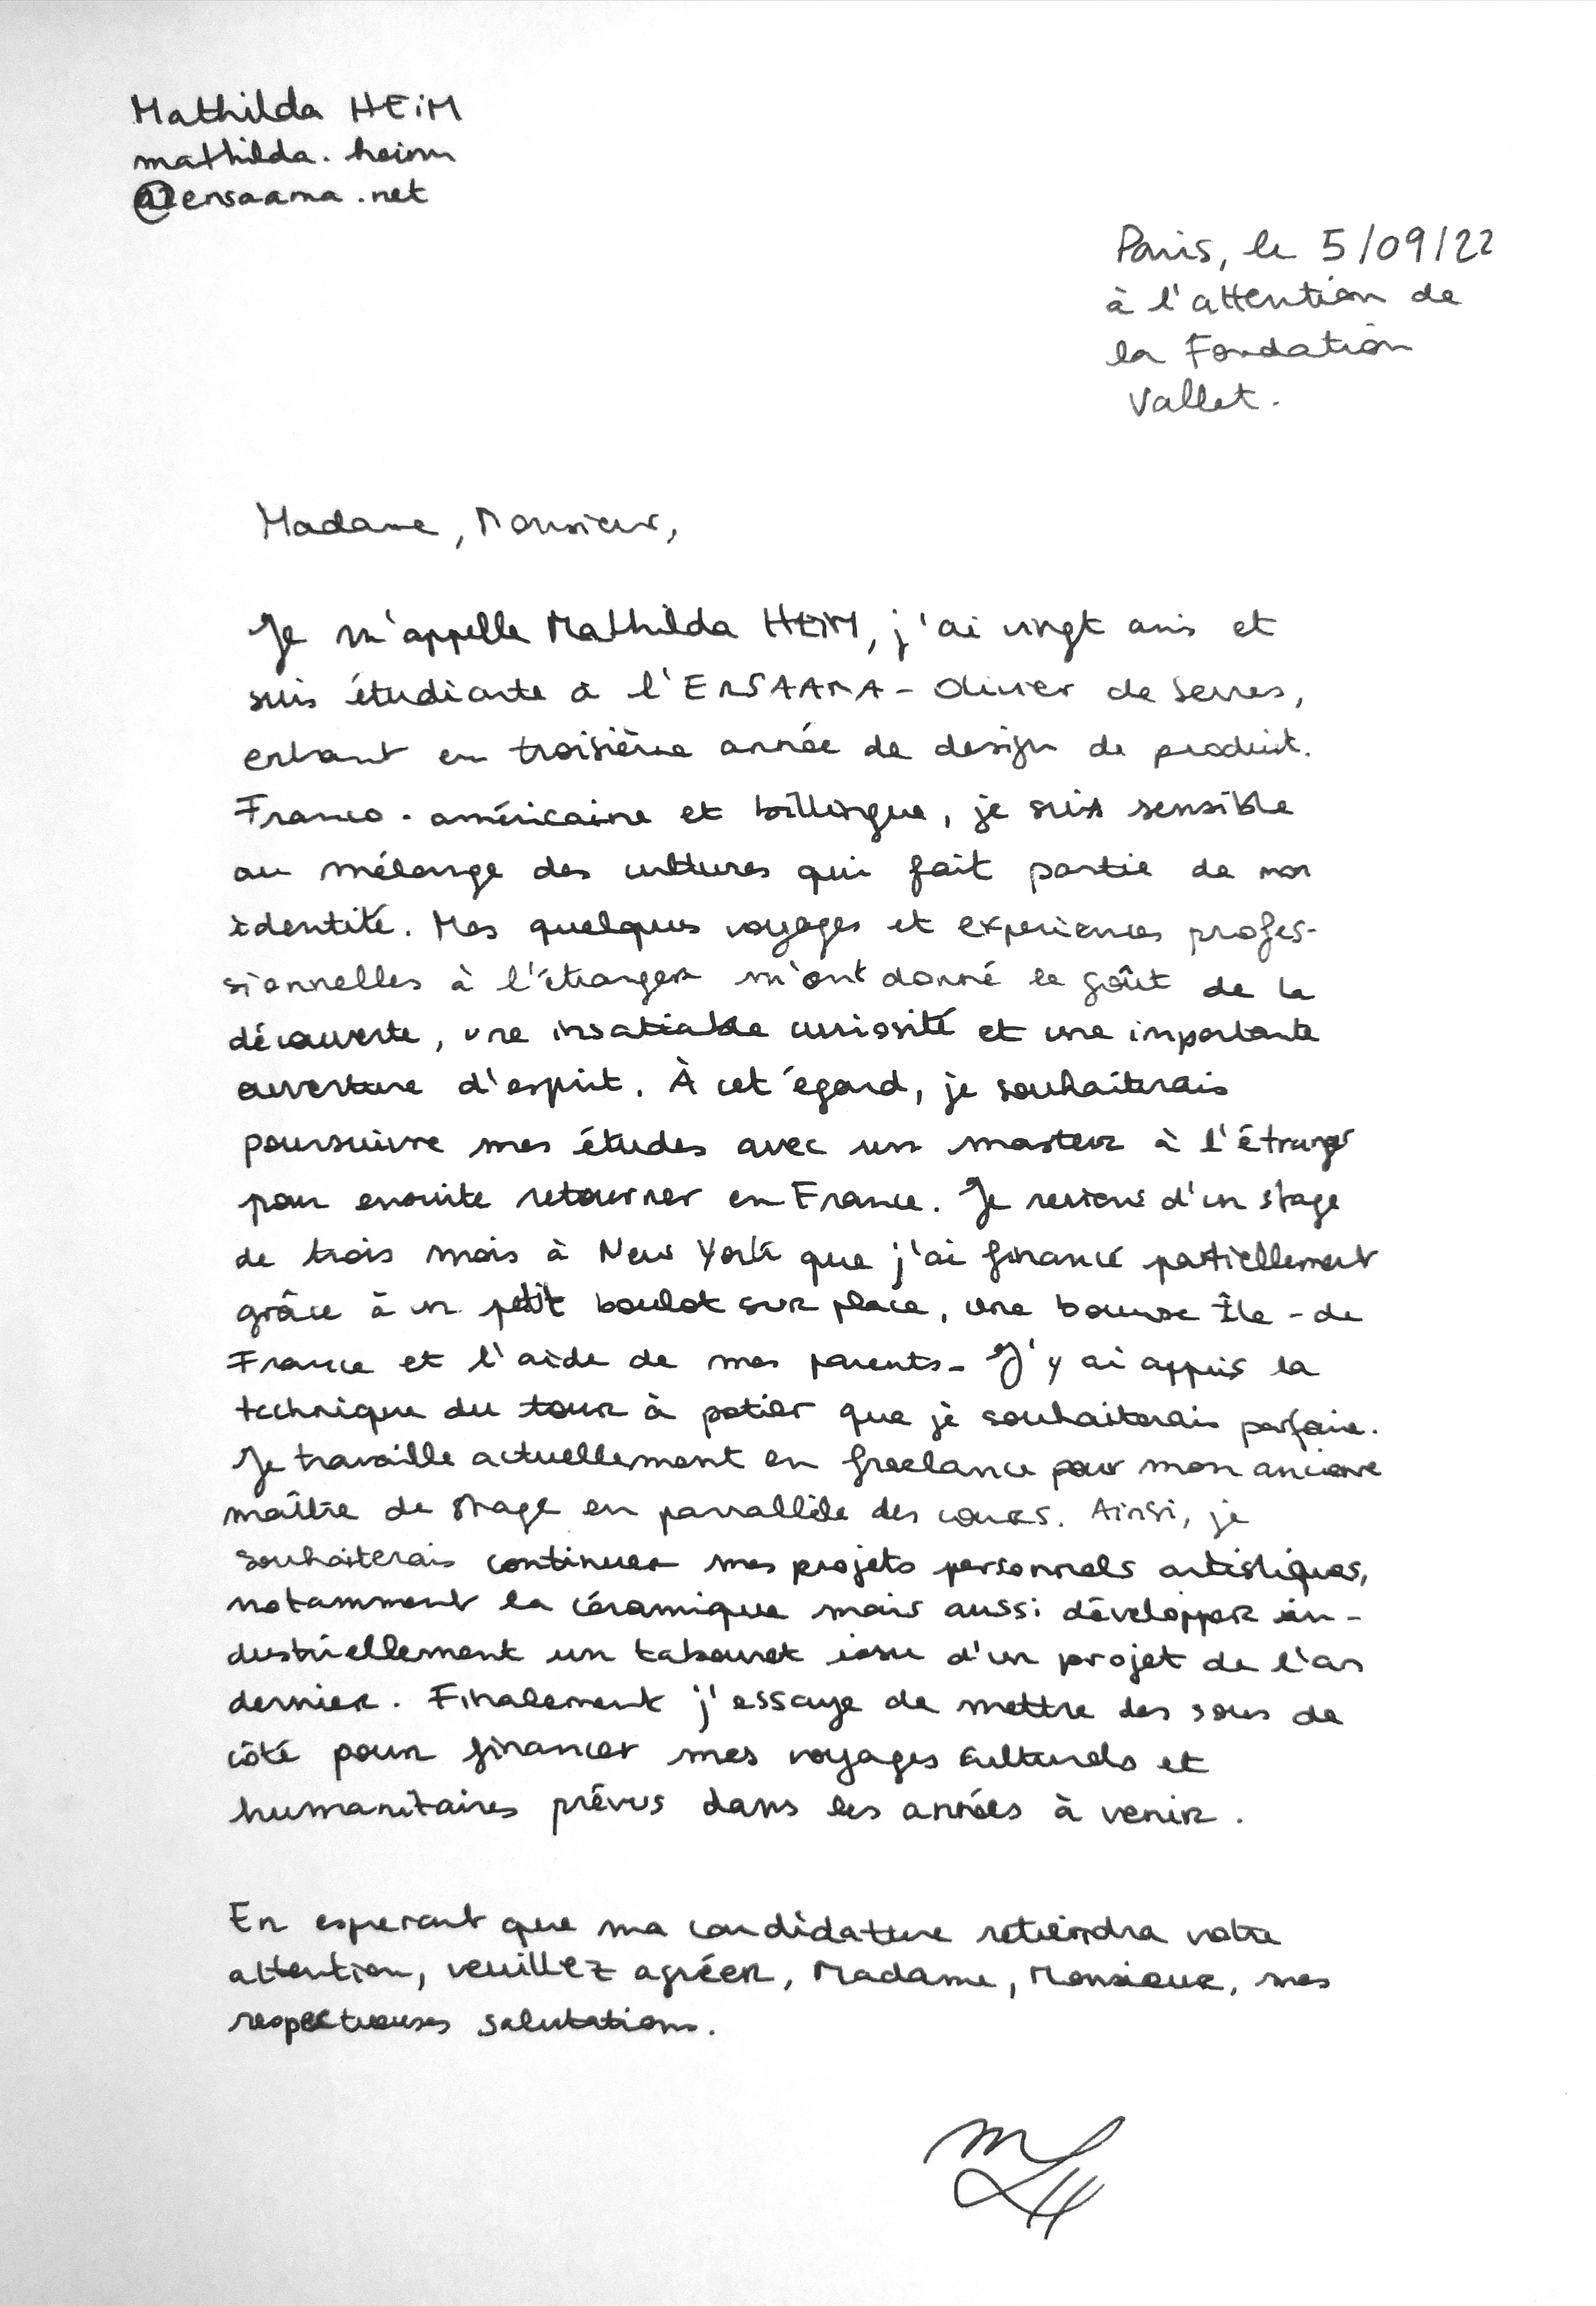 Mathilda HEiM
mathilda.heim
@ensaama.net
Paris, le 5/09/22
à l'attention de
la Fondation
Vallet.
Madame, Monsieur,
Je m'appelle Mathilda HEiM, j'ai vingt ans et
suis étudiante à l'ENSAAMA - Olivier de Serres,
entrant en troisième année de design de produit.
Franco-américaine et billingue, je suis sensible
au mélange des cultures qui fait partie de mon
identité. Mes quelques voyages et experiences profes-
sionnelles à l'étranger m'ont donné le goût de la
découverte, une insatiable curiosité et une importante
ouverture d'esprit. À cet égard, je souhaiterais
poursuivre mes études avec un master à l'étranger
pour ensuite retourner en France. Je reviens d'un stage
de trois mois à New York que j'ai financé partiellement
grâce à un petit boulot sur place, une bourse Île-de
France et l'aide de mes parents. J'y ai appris la
technique du tour à potier que je souhaiterais parfaire.
Je travaille actuellement en freelance pour mon
maître de stage en parallèle des cours. Ainsi, je
souhaiterais continuer mes projets personnels artistiques,
notamment la céramique mais aussi développer in-
dustriellement un tabouret issu d'un projet de l'an
dernier. Finalement j'essaye de mettre des sous de
côté pour financer mes voyages culturels et
humanitaires prévus dans les années à venir.
En esperant que ma candidature retiendra votre
attention, veuillez agréer, Madame, Monsieur, mes
respectueuses salutations.